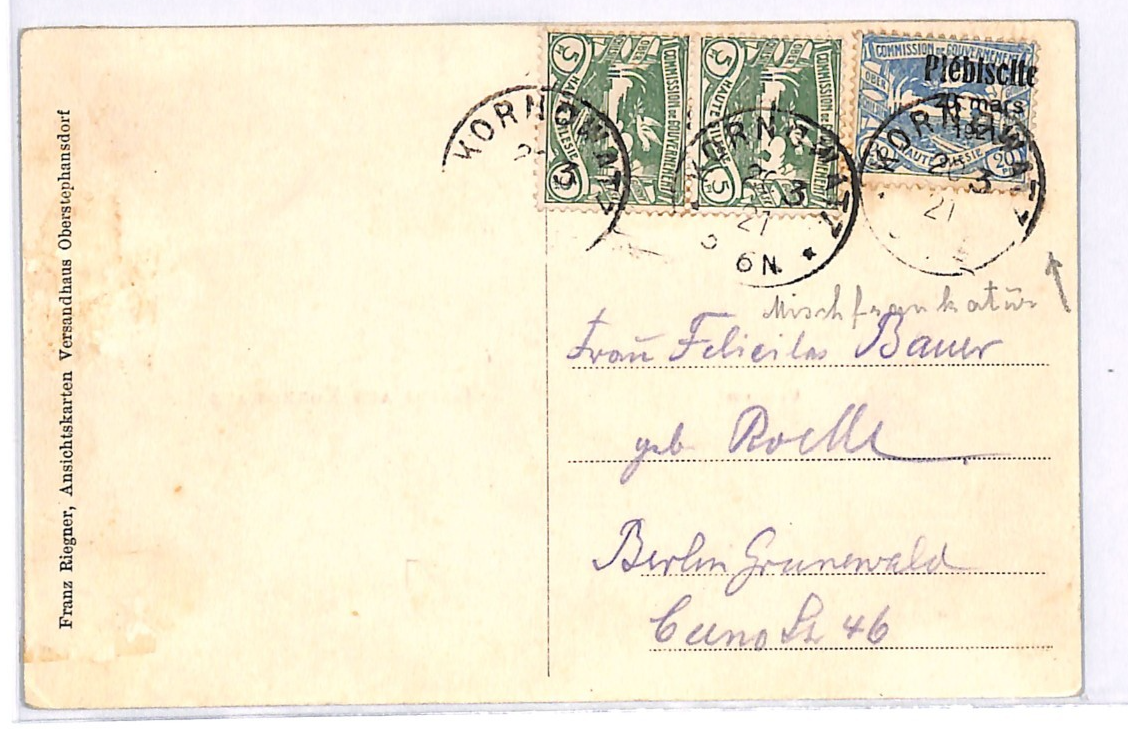 Franz Riegner, Ansichtskarten Versandhaus Oberstephansdorf
COMMISSION DE GOUVERNEMENT
HAUTE SILESIE
5
5
COMMISSION DE GOUVERNEMENT
HAUTE SILESIE
5
5
COMMISSION DE GOUVERNEMENT
HAUTE SILESIE
20
Plébiscite
20 mars
1921
KORNOWATZ
3
KORNOWATZ
3
21
6 N
*
KORNOWATZ
3
21
Mischfrankatur
Frau Felicitas Bauer
geb Roelle
Berlin Grunewald
Cuno St 46